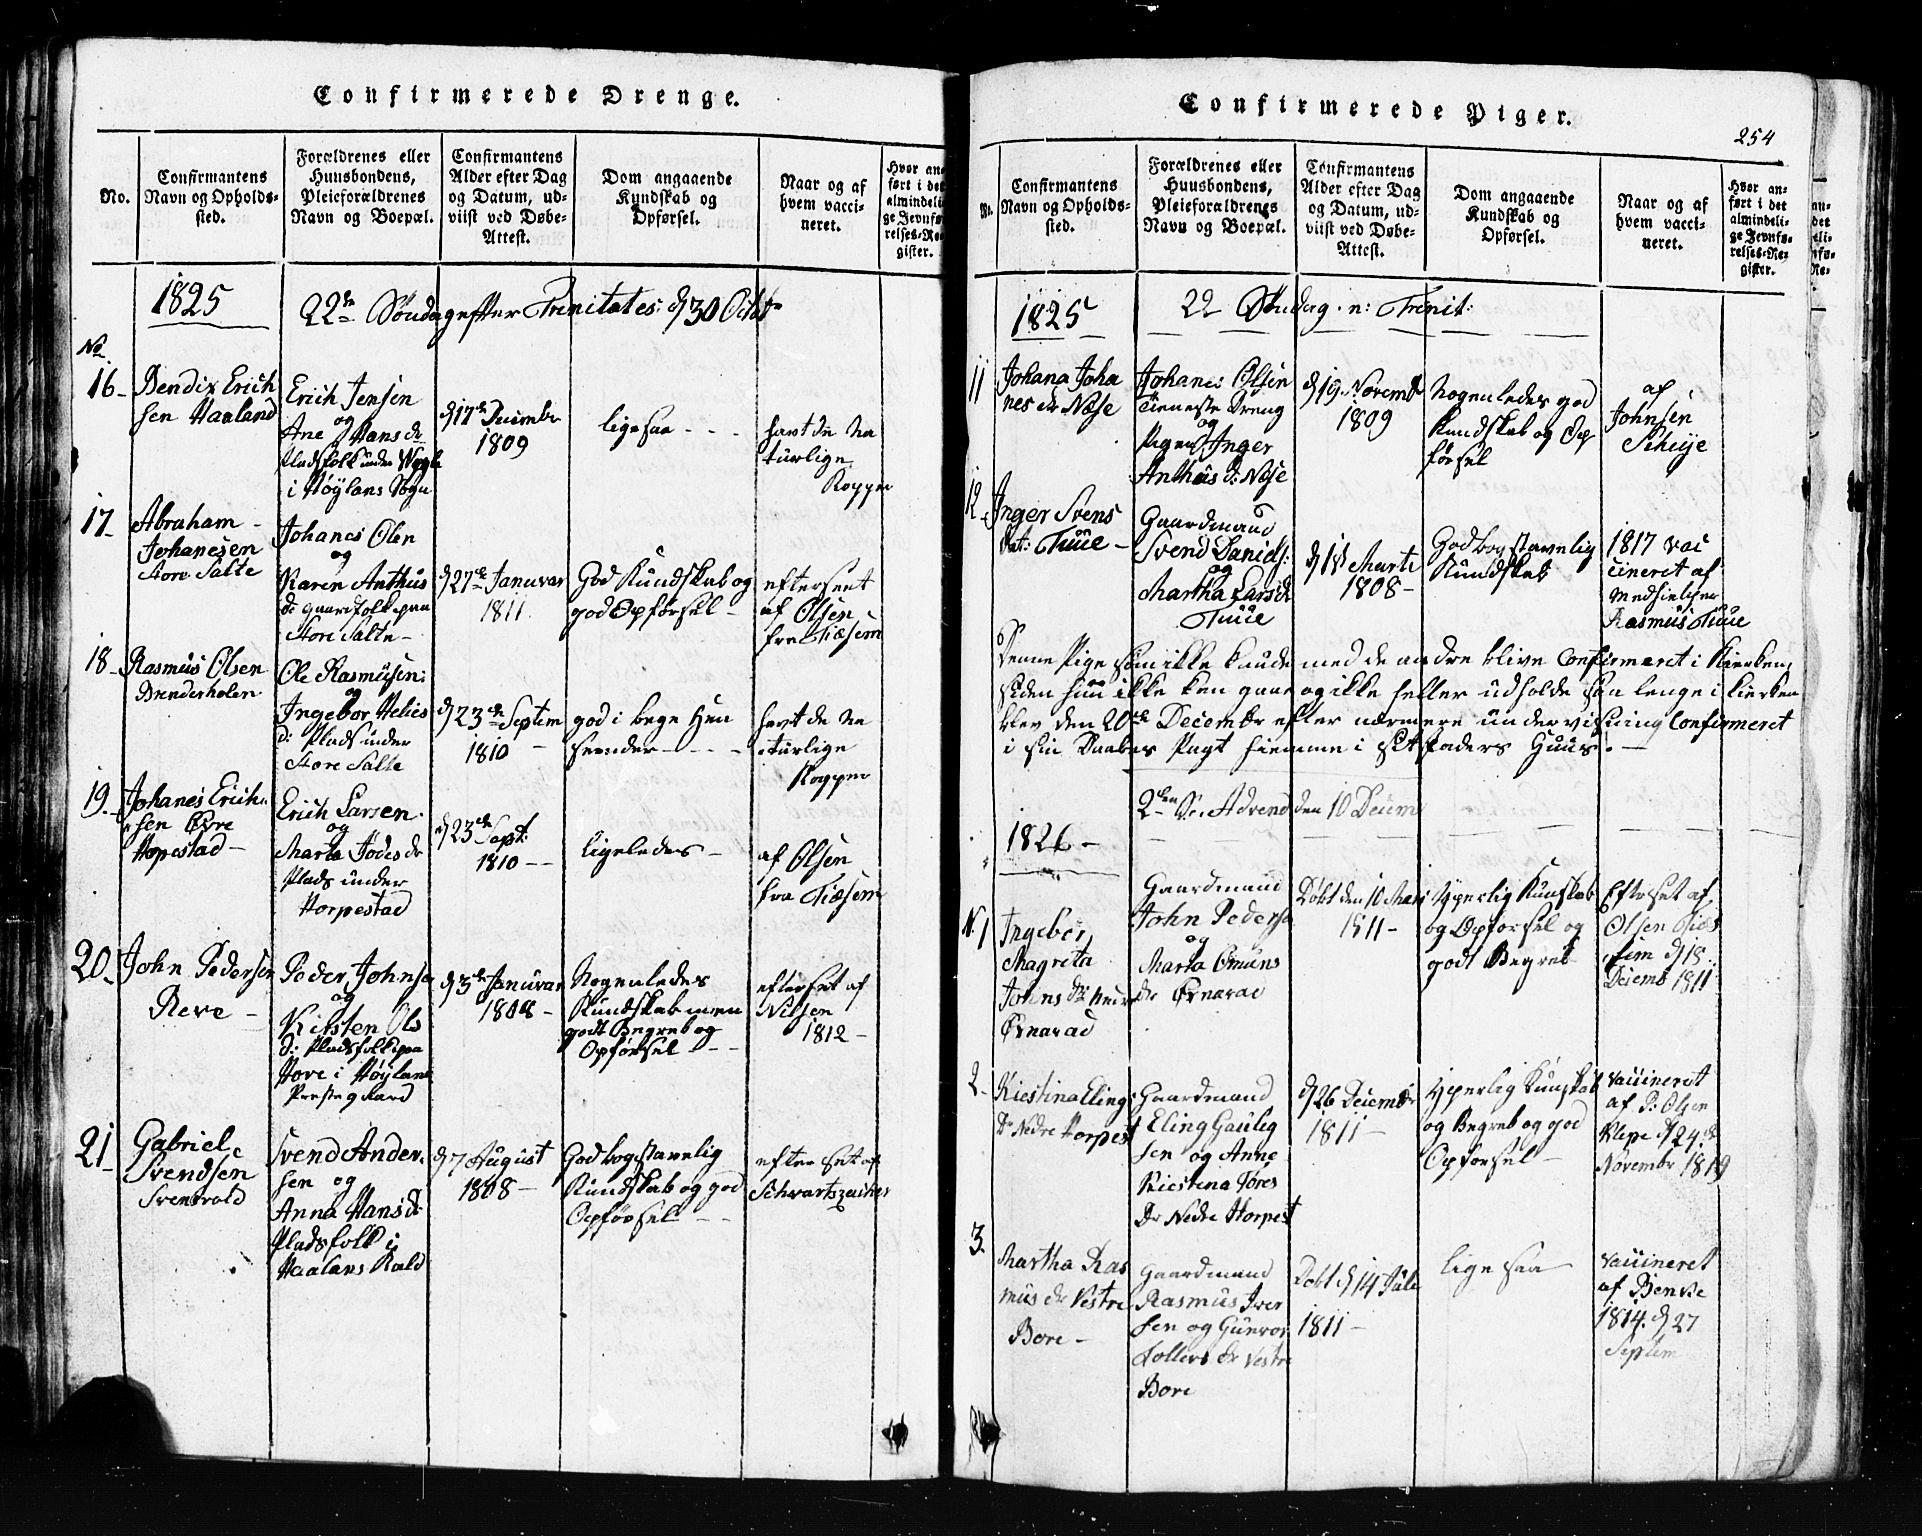 Confirmerede Drenge.
No.
Confirmantens
Navn og Opholds-
sted.
Forældrenes eller
Huusbondens,
Pleieforældrenes
Navn og Boepæl.
Confirmantens
Alder efter Dag
og Datum, ud-
viist ved Døbe-
Attest.
Dom angaaende
Kundskab og
Opførsel.
Naar og af
hvem vacci-
neret.
Hvor an-
ført i det
almindeli-
ge Jevnfø-
relses-Re-
gister.
1825
22de Søndag efter Trinitates d 30 Octobr
No
16- Bendix Erich
sen Haaland
Erich Jensen
og
Ane Hans dr
Pladsfolk under
i Høylans Sogn
d 17de Decembr
1809
ligesaa - - -
havt de na
turlige
Kopper
17- Abraham -
Johanesen
Store Salte
Johanes Olen
og
Karen Anthus
dr gaardfolk paa
Store Salte -
d 27de Januvar
1811
God Kundskab og
god Opførsel -
efterseet
af Olsen
fra Tiæsem
18- Rasmus Olsen
Brenderholen
Ole Rasmusen:
og
Ingebor Helies
d: Plads under
Store Salte
d 23de Septem
1810 -
god i bege Hen
seender - - -
havt de na
turlige
Kopper
19- Johanes Erich-
sen Øvre
Hopestad -
Erich Larsen
og
Marta Jødes dr
Plads under
Horpestad
d 23de Sept:
1810 - -
ligeledes -
af Olsen
fra Tiæsem
20- John Pedersen
Reve -
Peder Johnse
og
Kirsten Ols
d: Pladsfolk paa
Hove i Høyland
Prestegaard
d 3de Januvar
1808 -
Nogenledes
Kundskab men
godt Begreb og
Opførsel - -
efterset af
Nilsen
1812 -
21- Gabriel
Svendsen
Svertvold
Svend Ander-
sen og
Anna Hans dr
Pladsfolk i
Haalans Kald
d 7 August
1808 -
God bogstavelig
Kundskab og god
Opførsel - -
efterset af
Schwartszacher
Confirmerede Piger.
254
No.
Confirmantens
Navn og Opholds-
sted.
Forældrenes eller
Huusbondens,
Pleieforældrenes
Navn og Boepæl.
Confirmantens
Alder efter Dag
og Datum, ud-
viist ved Døbe-
Attest.
Dom angaaende
Kundskab og
Opførsel.
Naar og af
hvem vacci-
neret.
Hvor an-
ført i det
almindeli-
ge Jevnfø-
relses-Re-
gister.
1825
22 Søndag. n: Trinit:
11 Johana Joha
nes dr Næse
Johanes Olsen
Tieneste Dreng
og
Pigen Inger
Anthus d: Næse
d 19. Novembr
1809
Nogenledes god
Kundskab og Op
førsel
af
Johnsen
Scheije
12- Inger Svens
Dat: Tuue -
Gaardmand
Svend Daniels:
og
Martha Lars dr
Tuue
d 1st Marti
1808 -
God bogstavelig
Kundskab
1817 vac
cineret af
Medhielper
Rasmus Tuue
Denne Pige som ikke kunde med de andre blive Confirmeret i Kierken
siden hun ikke ken gaae og ikke heller udholde saa lenge i kierken
blev den 20de Decembr efter nærmere undervisning Confirmeret
i sin Daabes Pagt hiemme i sit faders Huus. -
1826 -
2den Sø: Advend den 10 Decemb
No 1 Ingebor
Magreta
Johns dr
Ørnarad
Gaardmand
John Pederse
og
Marta Omuns
dr Ørnarad
Døbt den 10 Mari
1811 -
Yperlig Kunskab
og Opførsel og
godt Begreb
Efterset af
Olsen Tiæs
him d 18
Decemb 1811
2- Kiestina Eling
Dr Nedre Horpest
Gaardmand
Eling Gauleg
sen og Anne
Kiestina Tøres
Dr Nedre Horpest
d 26 Decembr
1811 -
Yperlig Kunskab
og Begreb og god
Opførsel -
vaccineret
af P: Olsen
Klepe d 24de
Novembr 1819
3. Martha Ras
mus dr Vestre
Bore -
Gaardmand
Rasmus Iver
sen og Gunvor
Tollevs dr Vestre
Bore
Døbt d 14 Jule
1811 -
ligesaa
vaccineret
af Benke
1814. d 27
Septem